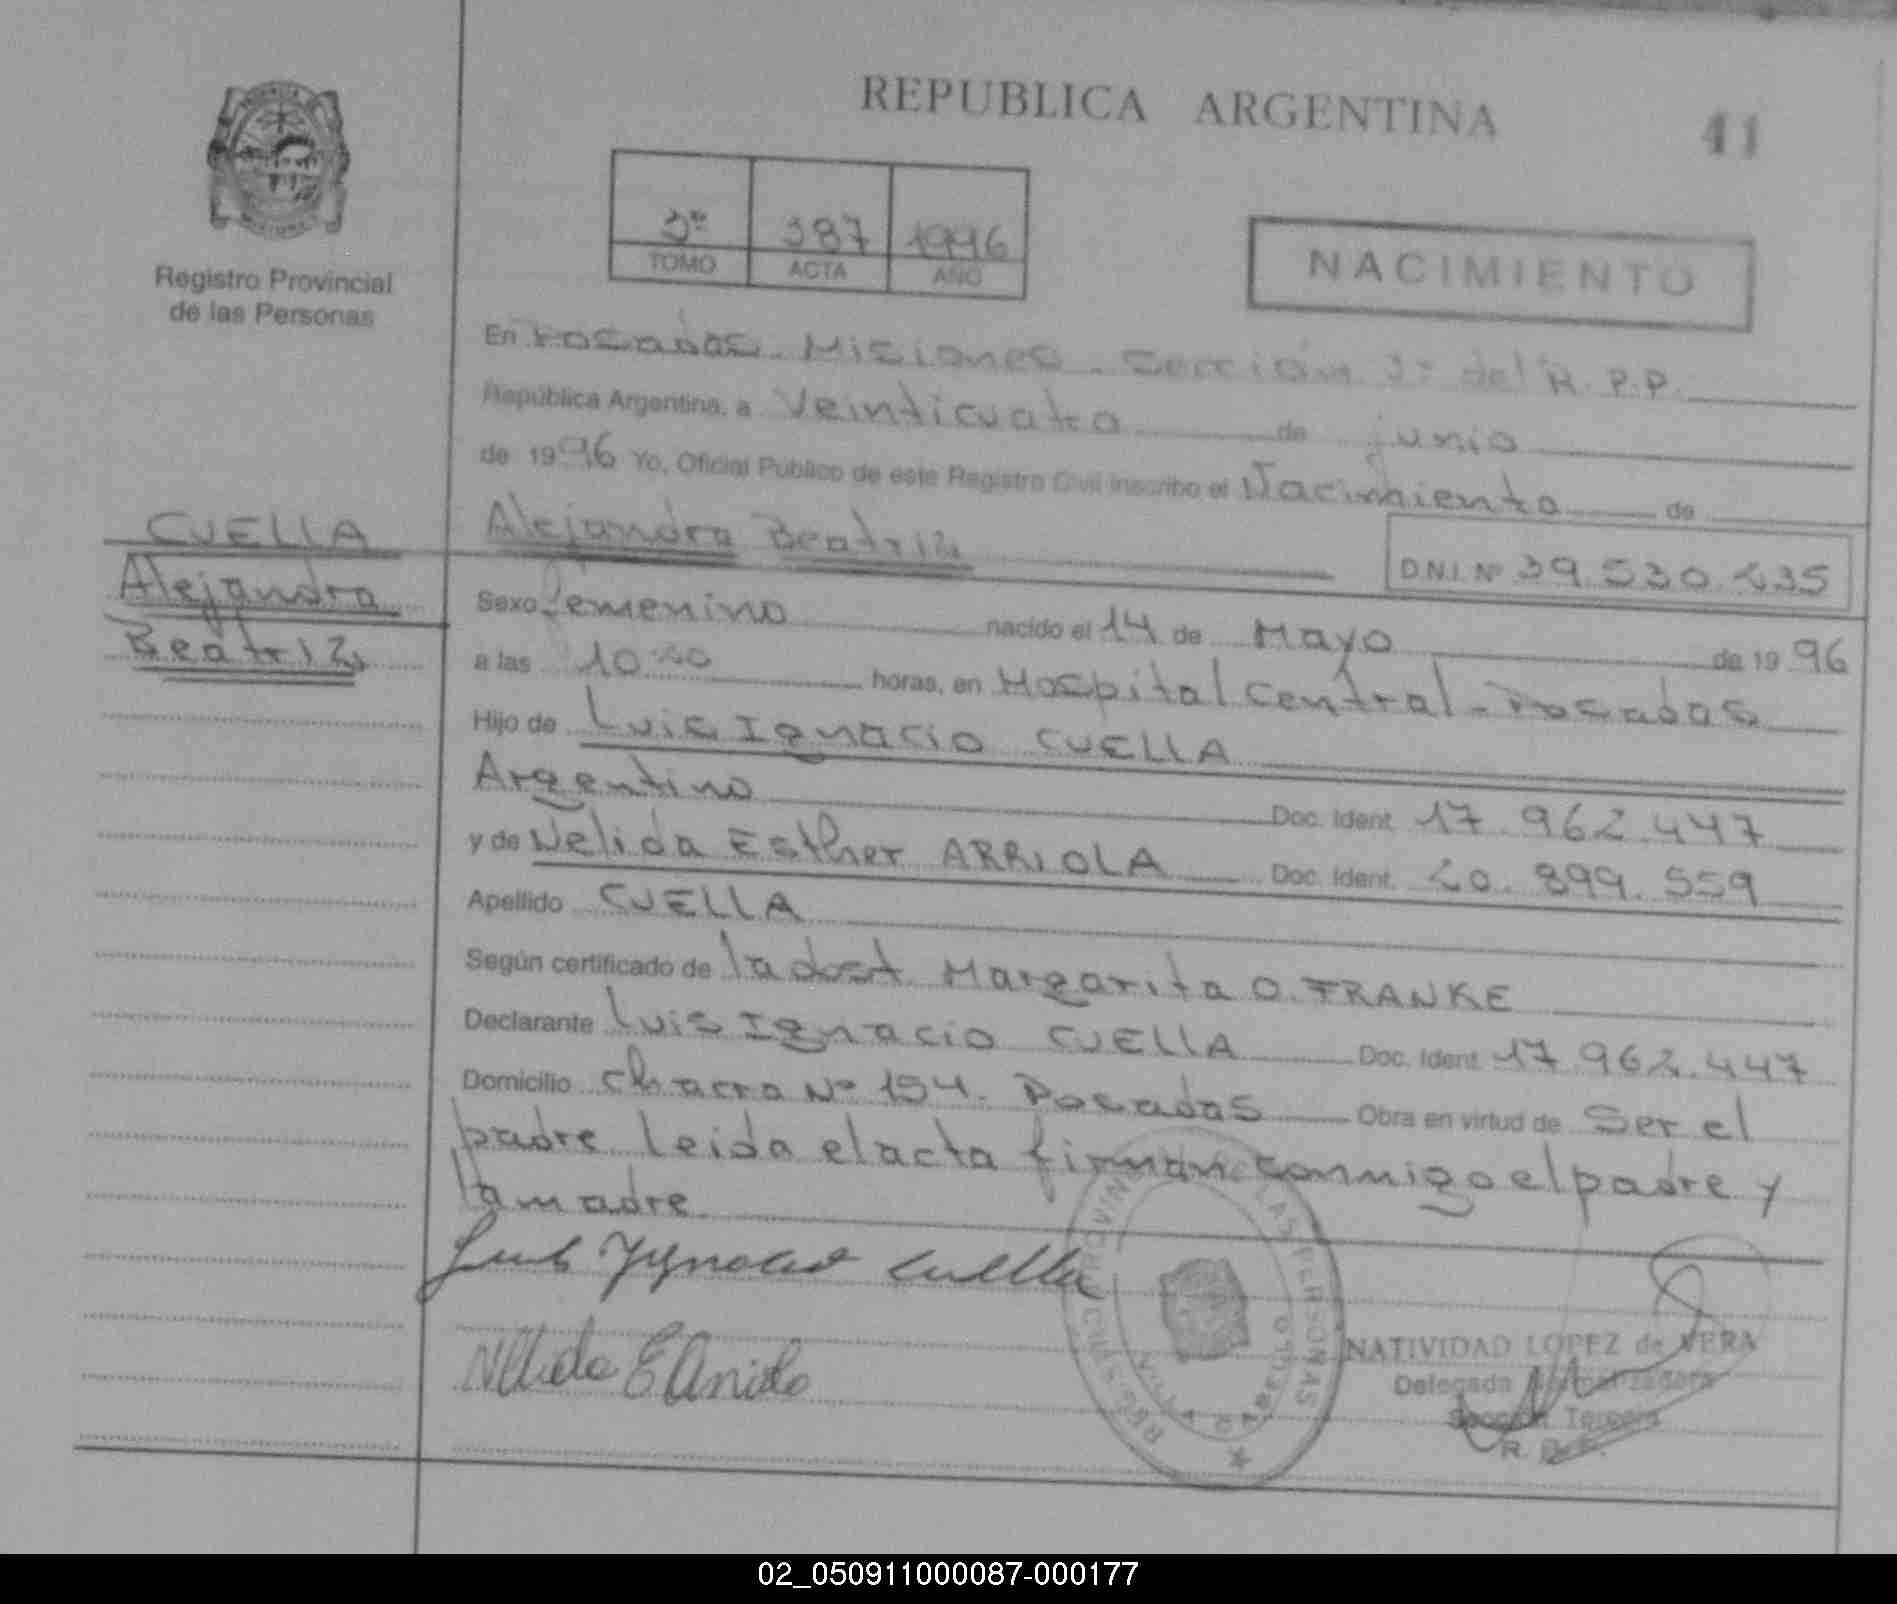 REPUBLICA ARGENTINA
41
Registro Provincial
de las Personas
3º 387 1996
TOMO ACTA AÑO
NACIMIENTO
En Posadas - Misiones - Sección 3º del R.P.P.
República Argentina, a Veinticuatro de junio
de 1996 Yo, Oficial Público de este Registro Civil inscribo el Nacimiento de
Alejandra Beatriz
D.N.I. Nº 39.530.235
CUELLA
Alejandra
Beatriz
Sexo femenino nacido el 14 de Mayo de 1996
a las horas, en Hospital Central - Posadas
Hijo de Luis Ignacio CUELLA
Argentino Doc. Ident. 17.962.447
y de Nelida Esther ARRIOLA Doc. Ident. 20.899.559
Apellido CUELLA
Según certificado de la obst. Margarita O. FRANKE
Declarante Luis Ignacio CUELLA Doc. Ident. 17.962.447
Domicilio Chacra Nº 154. Posadas Obra en virtud de Ser el
padre leida el acta firman conmigo el padre y
la madre
Luis Ygnacio Cuella
NATIVIDAD LOPEZ de VERA
Delegada
Sección Tercera
02_050911000087-000177